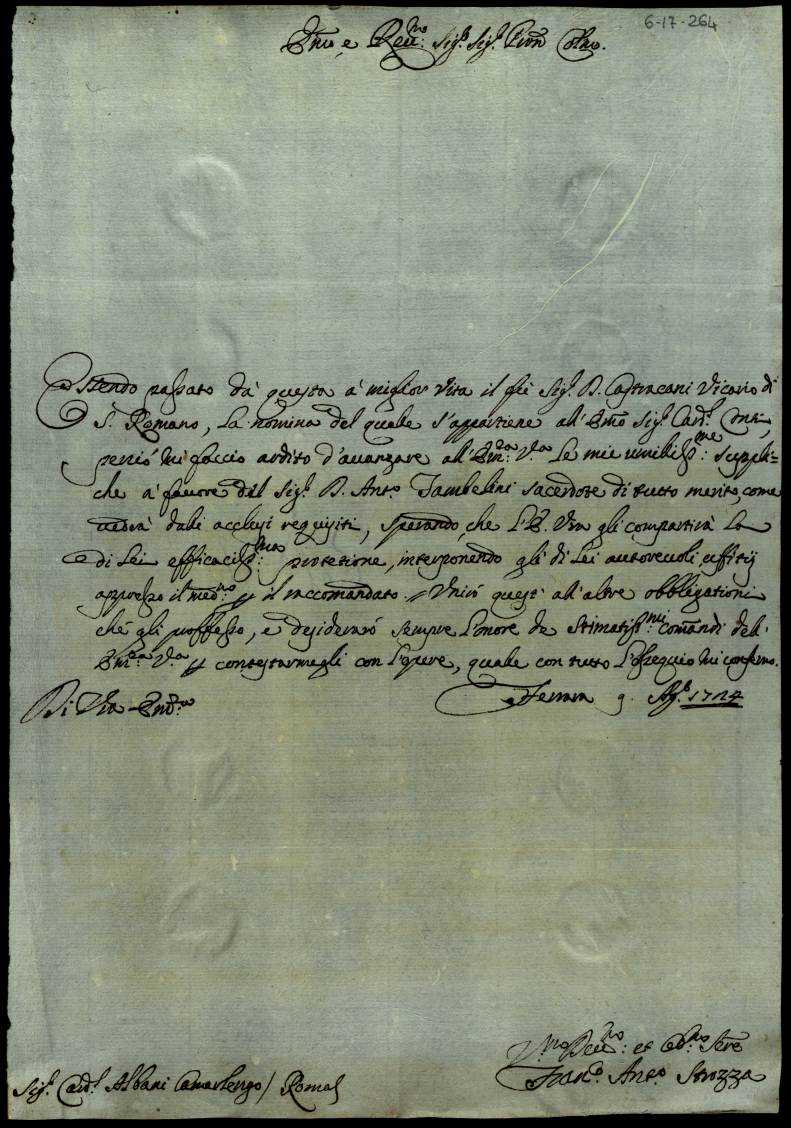 6-17-264
Emo, e Reu:mo Sig.r Sig.r Pron Colmo.
Essendo passato da questa à miglior vita il fù Sig.r D. Castracani Vicario di
S. Romano, La nomina del quale s'appartiene all'Emo Sig.r Card.l Conti,
perciò mi faccio ardito d'auanzare all'Em:za V.ra Le mie umiliss:me suppli=
che à fauore del Sig.r D. Ant.o Tambelini sacerdote di tutto merito, come
uedrà dalli acclusi requisiti, sperando, che l'E. Vra gli compartirà La
di Lei efficaciss:ma protetione, interponendo gli di Lei autoreuoli uffitij
appresso il med:mo p il raccomandato. Unirò quest' all'altre obbligationi
che gli professo, e desiderarò sempre l'onore de Stimatiss:mi comandi dell'
Em:za V.ra p contestarmegli con l'opere, quale con tutto l'Ossequio mi confermo.
Di Vra Em:za
Ferrara 9 Ag.o 1724
V.mo Deu:mo et Ob:mo Serre
Fran.o Ant.o Strozza
Sig.r Card.l Albani Camarlengo / Roma